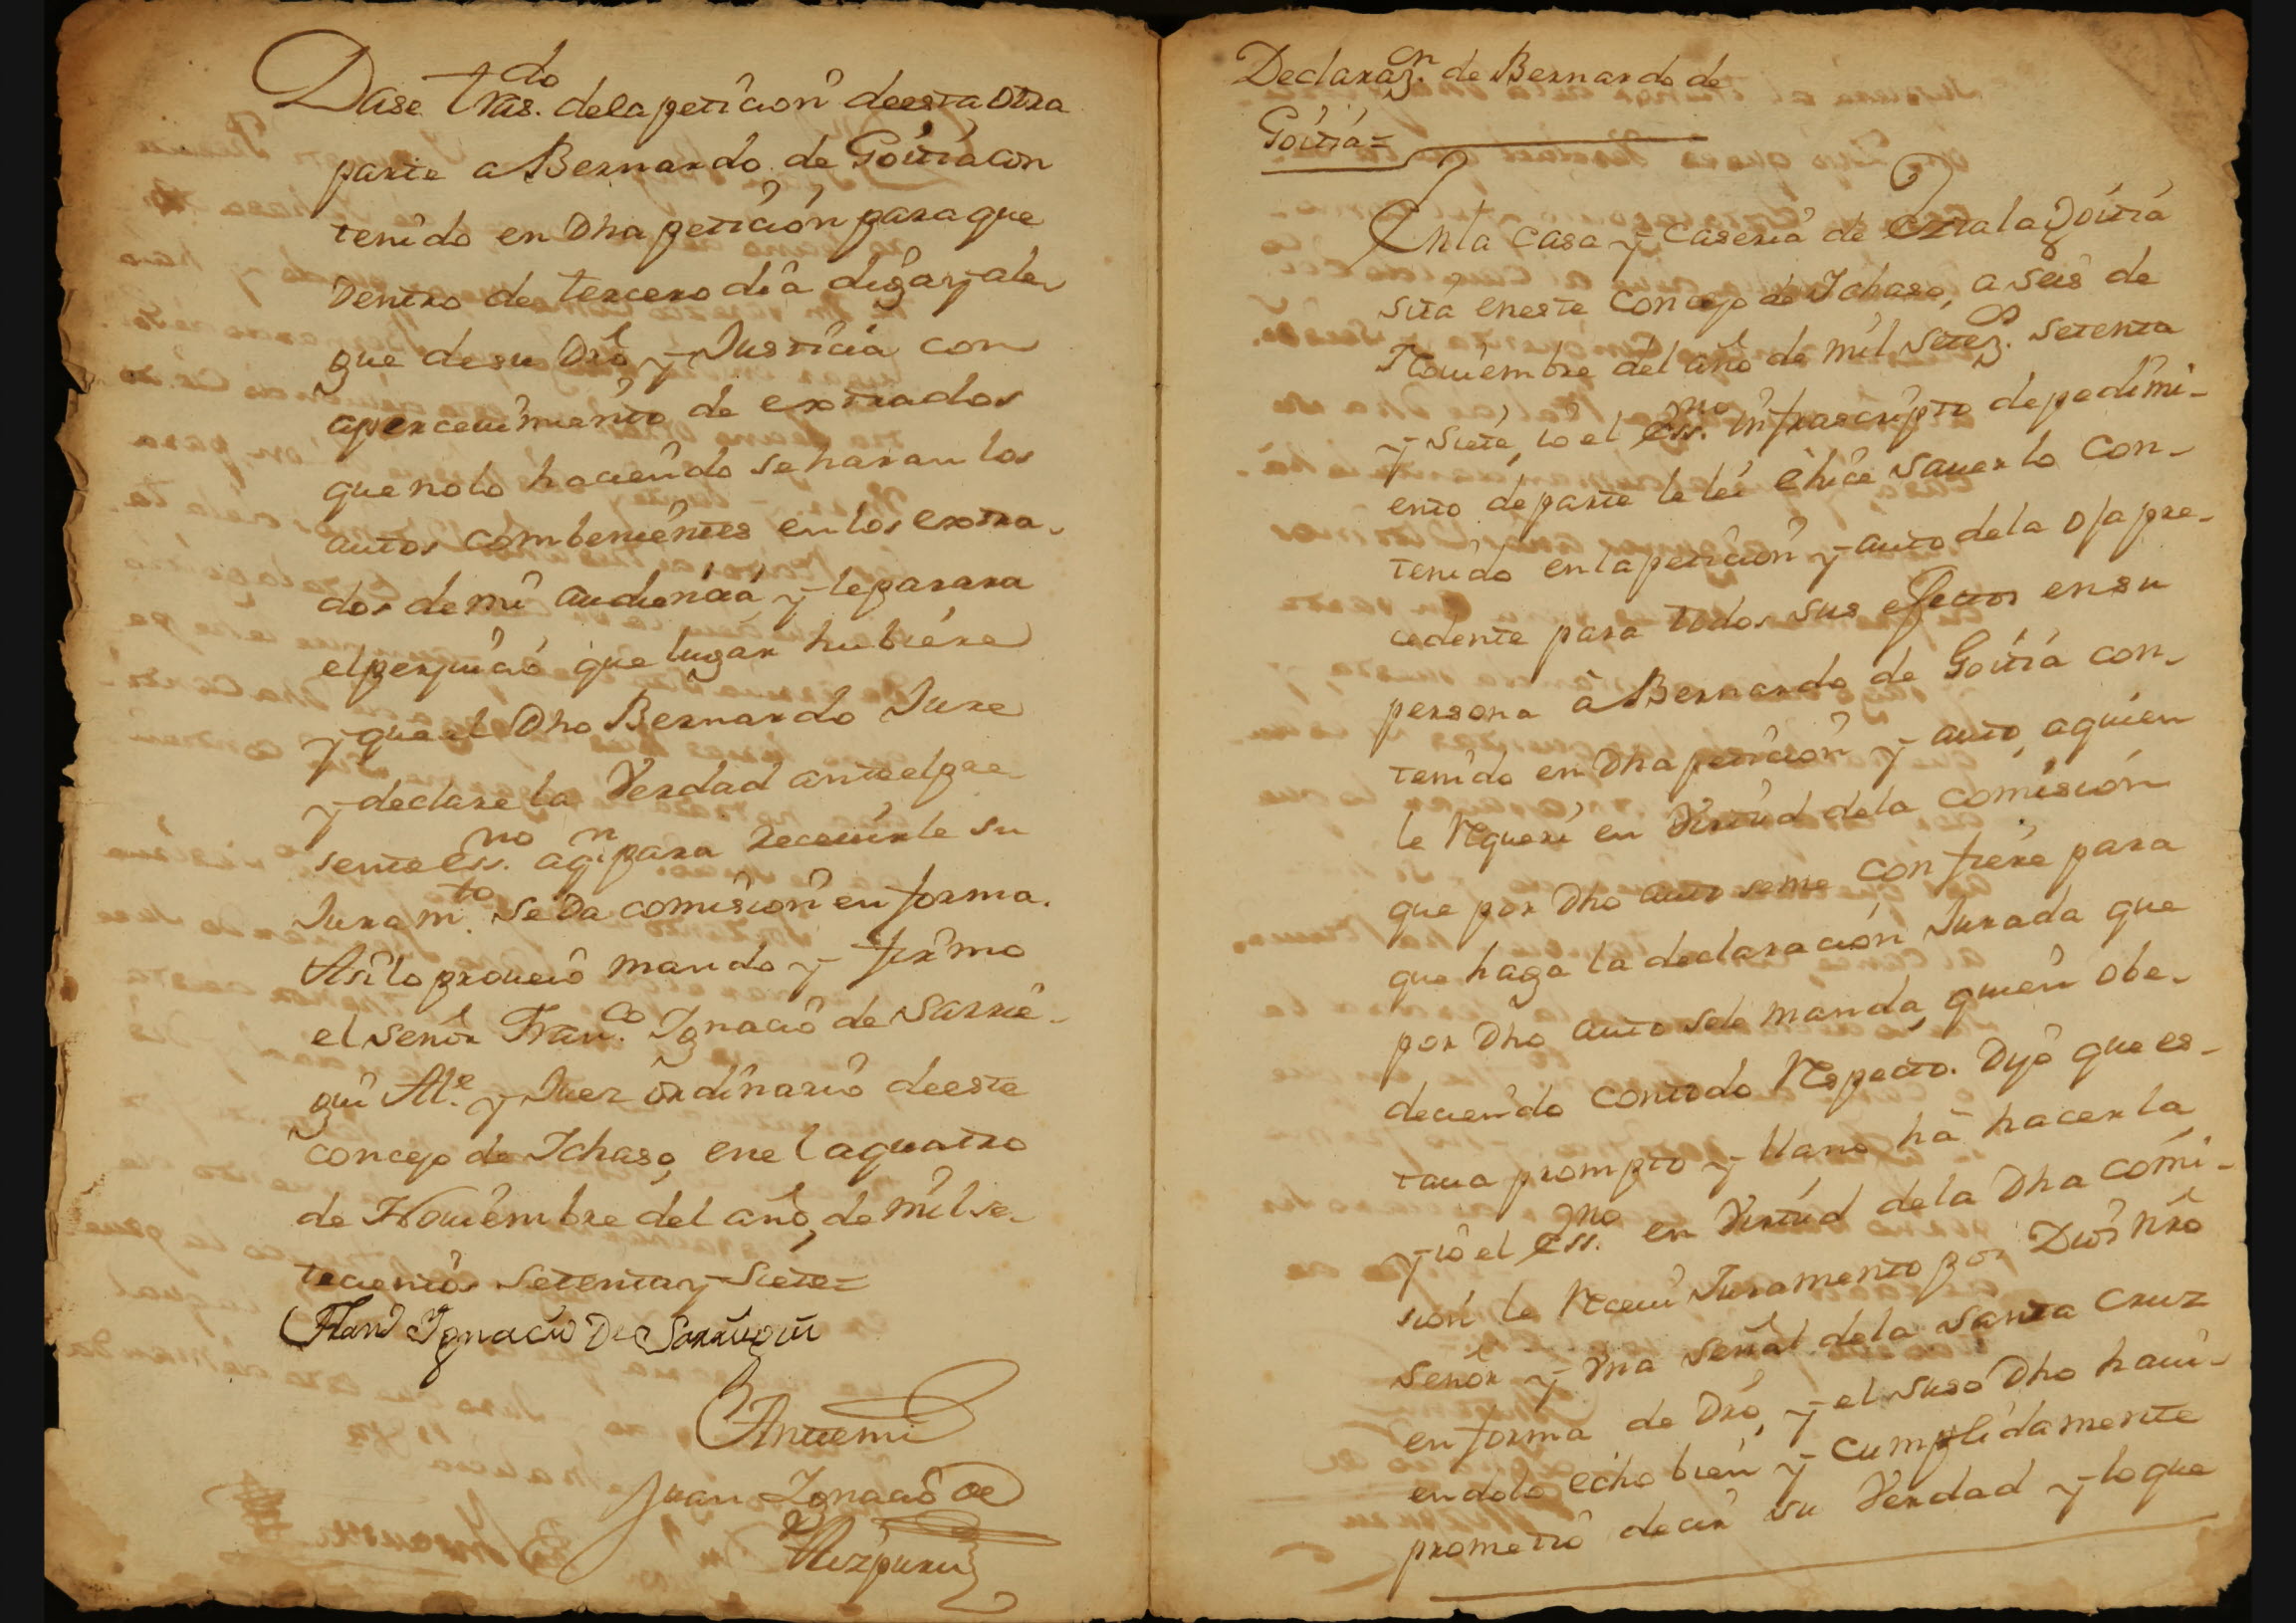 Dase tras.do dela peticion de esta otra
parte a Bernardo de Goitia con
tenido en Dha peticion para que
Dentro de tercero dia diga y ale
gue de su Dro y Justicia con
apercevimiento de extrados
que no lo haciendo se haran los
autos combenientes en los extra-
dos de mi audiencia y le parara
el perjuicio que lugar hubiere
y que el Dho Bernardo Jure
y declare la Verdad ante el pre
sente Ess.no aqn para recevirle su
Juram.to se Da comision en forma.
Asi lo proveio mando y firmo
el señor Fran.co Ignacio de Sarrie-
gui Al.e y Juez ordinario de este
concejo de Ichaso, en el a quatro
de Noviembre del año de mil se-
tecientos setenta y siete=
Fran Ignacio De Sarriegui
Antemi
Juan Ignacio de
Aizpuru
Declaraz.on de Bernardo de
Goitia=
En la casa y caseria de Eztala goitia
sita en este Concejo de Ichaso, a seis de
Noviembre del año de mil setez.s setenta
y siete, io el Ess.no infrascripto de pedimi-
ento de parte le lei e hice saver lo con-
tenido en la peticion y auto de la oja pre-
cedente para todos sus efectos en su
persona à Bernardo de Goitia con-
tenido en Dha peticion y auto, a quien
le Requeri en Virtud de la comision
que por Dho auto se me confiere para
que haga la declaracion Jurada que
por Dho auto se le manda, quien obe-
deciendo con todo Respecto. Dijo que es-
tava prompto y llano hà hacerla,
y io el Ess.no en Virtud de la Dha comi-
sion le Recevi Juramento por Dios nro
señor y Una señal de la santa Cruz
en forma de Dro, y el suso Dho havi-
endolo echo bien y cumplidamente
prometio decir su Verdad y lo que